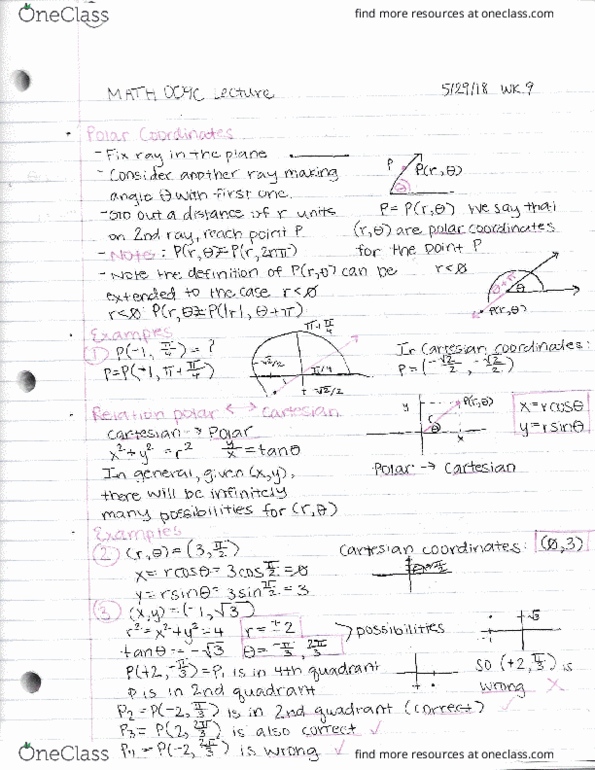 OneClass
find more resources at oneclass.com
MATH 009C Lecture
5/29/18 WK.9
Polar Coordinates
- Fix ray in the plane
- Consider another ray making
angle θ with first one.
- Go out a distance of r units
on 2nd ray, reach point P.
P P(r,θ)
θ
P = P(r,θ) We say that
(r,θ) are polar coordinates
for the point P
- Note: P(r,θ)≠P(r,2nπ)
- Note the definition of P(r,θ) can be
extended to the case r<0
r<0: P(r,θ)≠P(|r|, θ+π)
r<0
θ+π
θ
P(r,θ)
Examples
① P(-1, π/4) = ?
P=P(-1, π+π/4)
π+π/4
-√2/2
π/4
√2/2
In Cartesian coordinates:
P=(-√2/2, -√2/2)
Relation polar <-> Cartesian
Cartesian → Polar
x²+y² = r² y/x = tanθ
In general, given (x,y),
there will be infinitely
many possibilities for (r,θ)
y P(r,θ)
r
θ
x
x=rcosθ
y=rsinθ
Polar → Cartesian
Examples
② (r,θ)=(3,π/2)
x=rcosθ=3cosπ/2=0
y=rsinθ=3sinπ/2=3
Cartesian coordinates: (0,3)
③ (x,y)=(-1,√3)
r²=x²+y²=4 r=±2
tanθ=-√3 θ=-π/3, 2π/3
possibilities
+√3
P(+2,-π/3)=P₁ is in 4th quadrant
P is in 2nd quadrant
so (+2,π/3) is
wrong ✗
P₂=P(-2,π/3) is in 2nd quadrant (correct) ✓
P₃=P(2,2π/3) is also correct ✓
P₄=P(-2,2π/3) is wrong ✓
OneClass
find more resources at oneclass.com